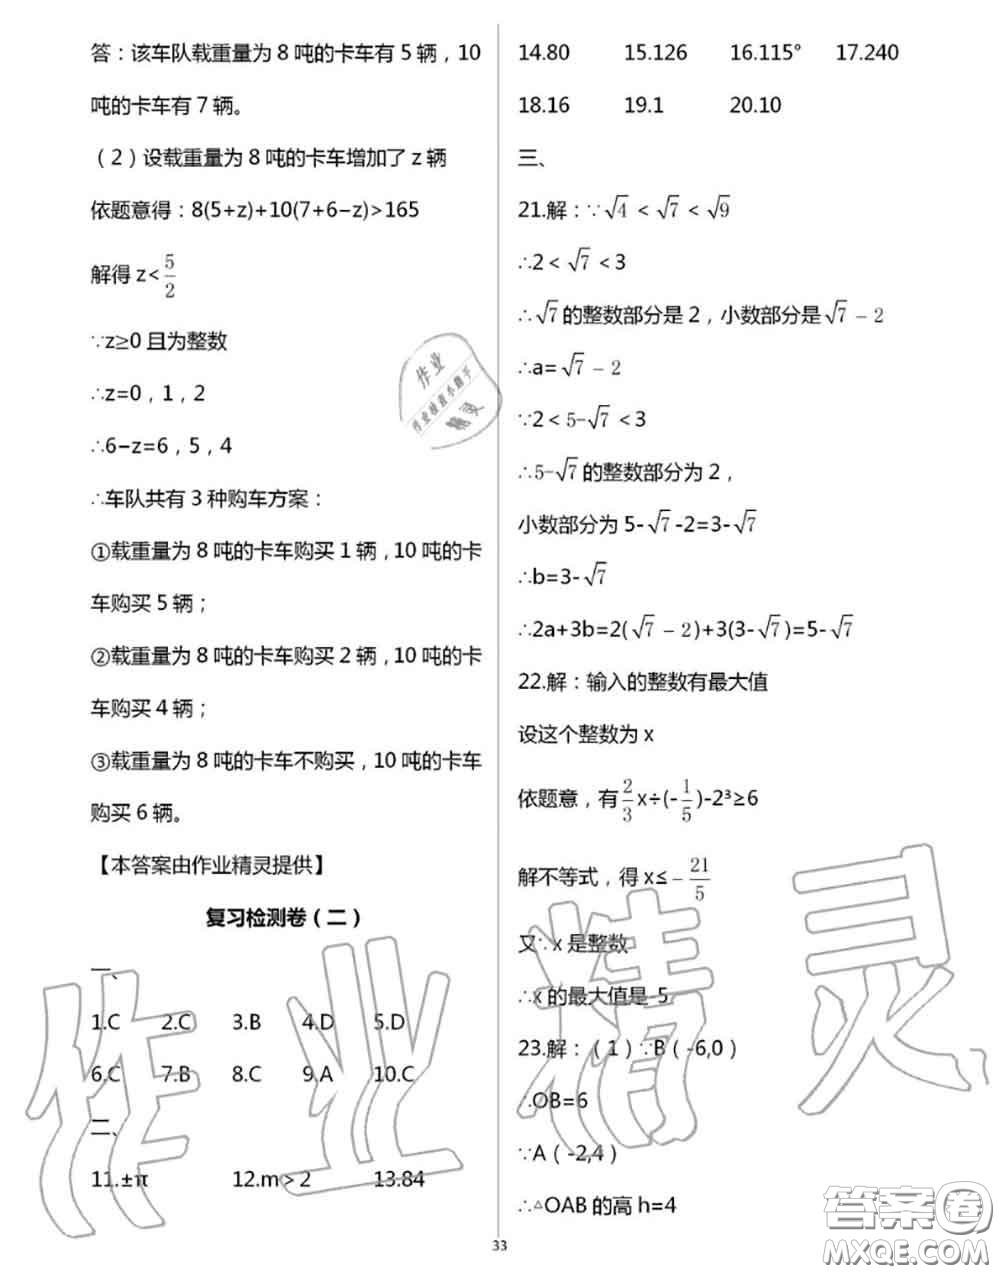 答：该车队载重量为 8 吨的卡车有 5 辆，10
吨的卡车有 7 辆。
（2）设载重量为 8 吨的卡车增加了 z 辆
依题意得：8(5+z)+10(7+6−z)>165
解得 z<5/2
∵z≥0 且为整数
∴z=0，1，2
∴6−z=6，5，4
∴车队共有 3 种购车方案：
①载重量为 8 吨的卡车购买 1 辆，10 吨的卡
车购买 5 辆；
②载重量为 8 吨的卡车购买 2 辆，10 吨的卡
车购买 4 辆；
③载重量为 8 吨的卡车不购买，10 吨的卡车
购买 6 辆。
【本答案由作业精灵提供】
复习检测卷（二）
一、
1.C 2.C 3.B 4.D 5.D
6.C 7.B 8.C 9.A 10.C
二、
11.±π 12.m＞2 13.84
14.80 15.126 16.115° 17.240
18.16 19.1 20.10
三、
21.解：∵√4＜√7＜√9
∴2＜√7＜3
∴√7的整数部分是 2，小数部分是√7−2
∴a=√7−2
∵2＜5-√7＜3
∴5-√7的整数部分为 2，
小数部分为 5-√7-2=3-√7
∴b=3-√7
∴2a+3b=2(√7−2)+3(3-√7)=5-√7
22.解：输入的整数有最大值
设这个整数为 x
依题意，有2/3x÷(-1/5)-2³≥6
解不等式，得 x≤−21/5
又∵x 是整数
∴x 的最大值是-5
23.解：（1）∵B（-6,0）
∴OB=6
∵A（-2,4）
∴△OAB 的高 h=4
33
作业
精灵
作业精灵
答案圈
MXQE.COM